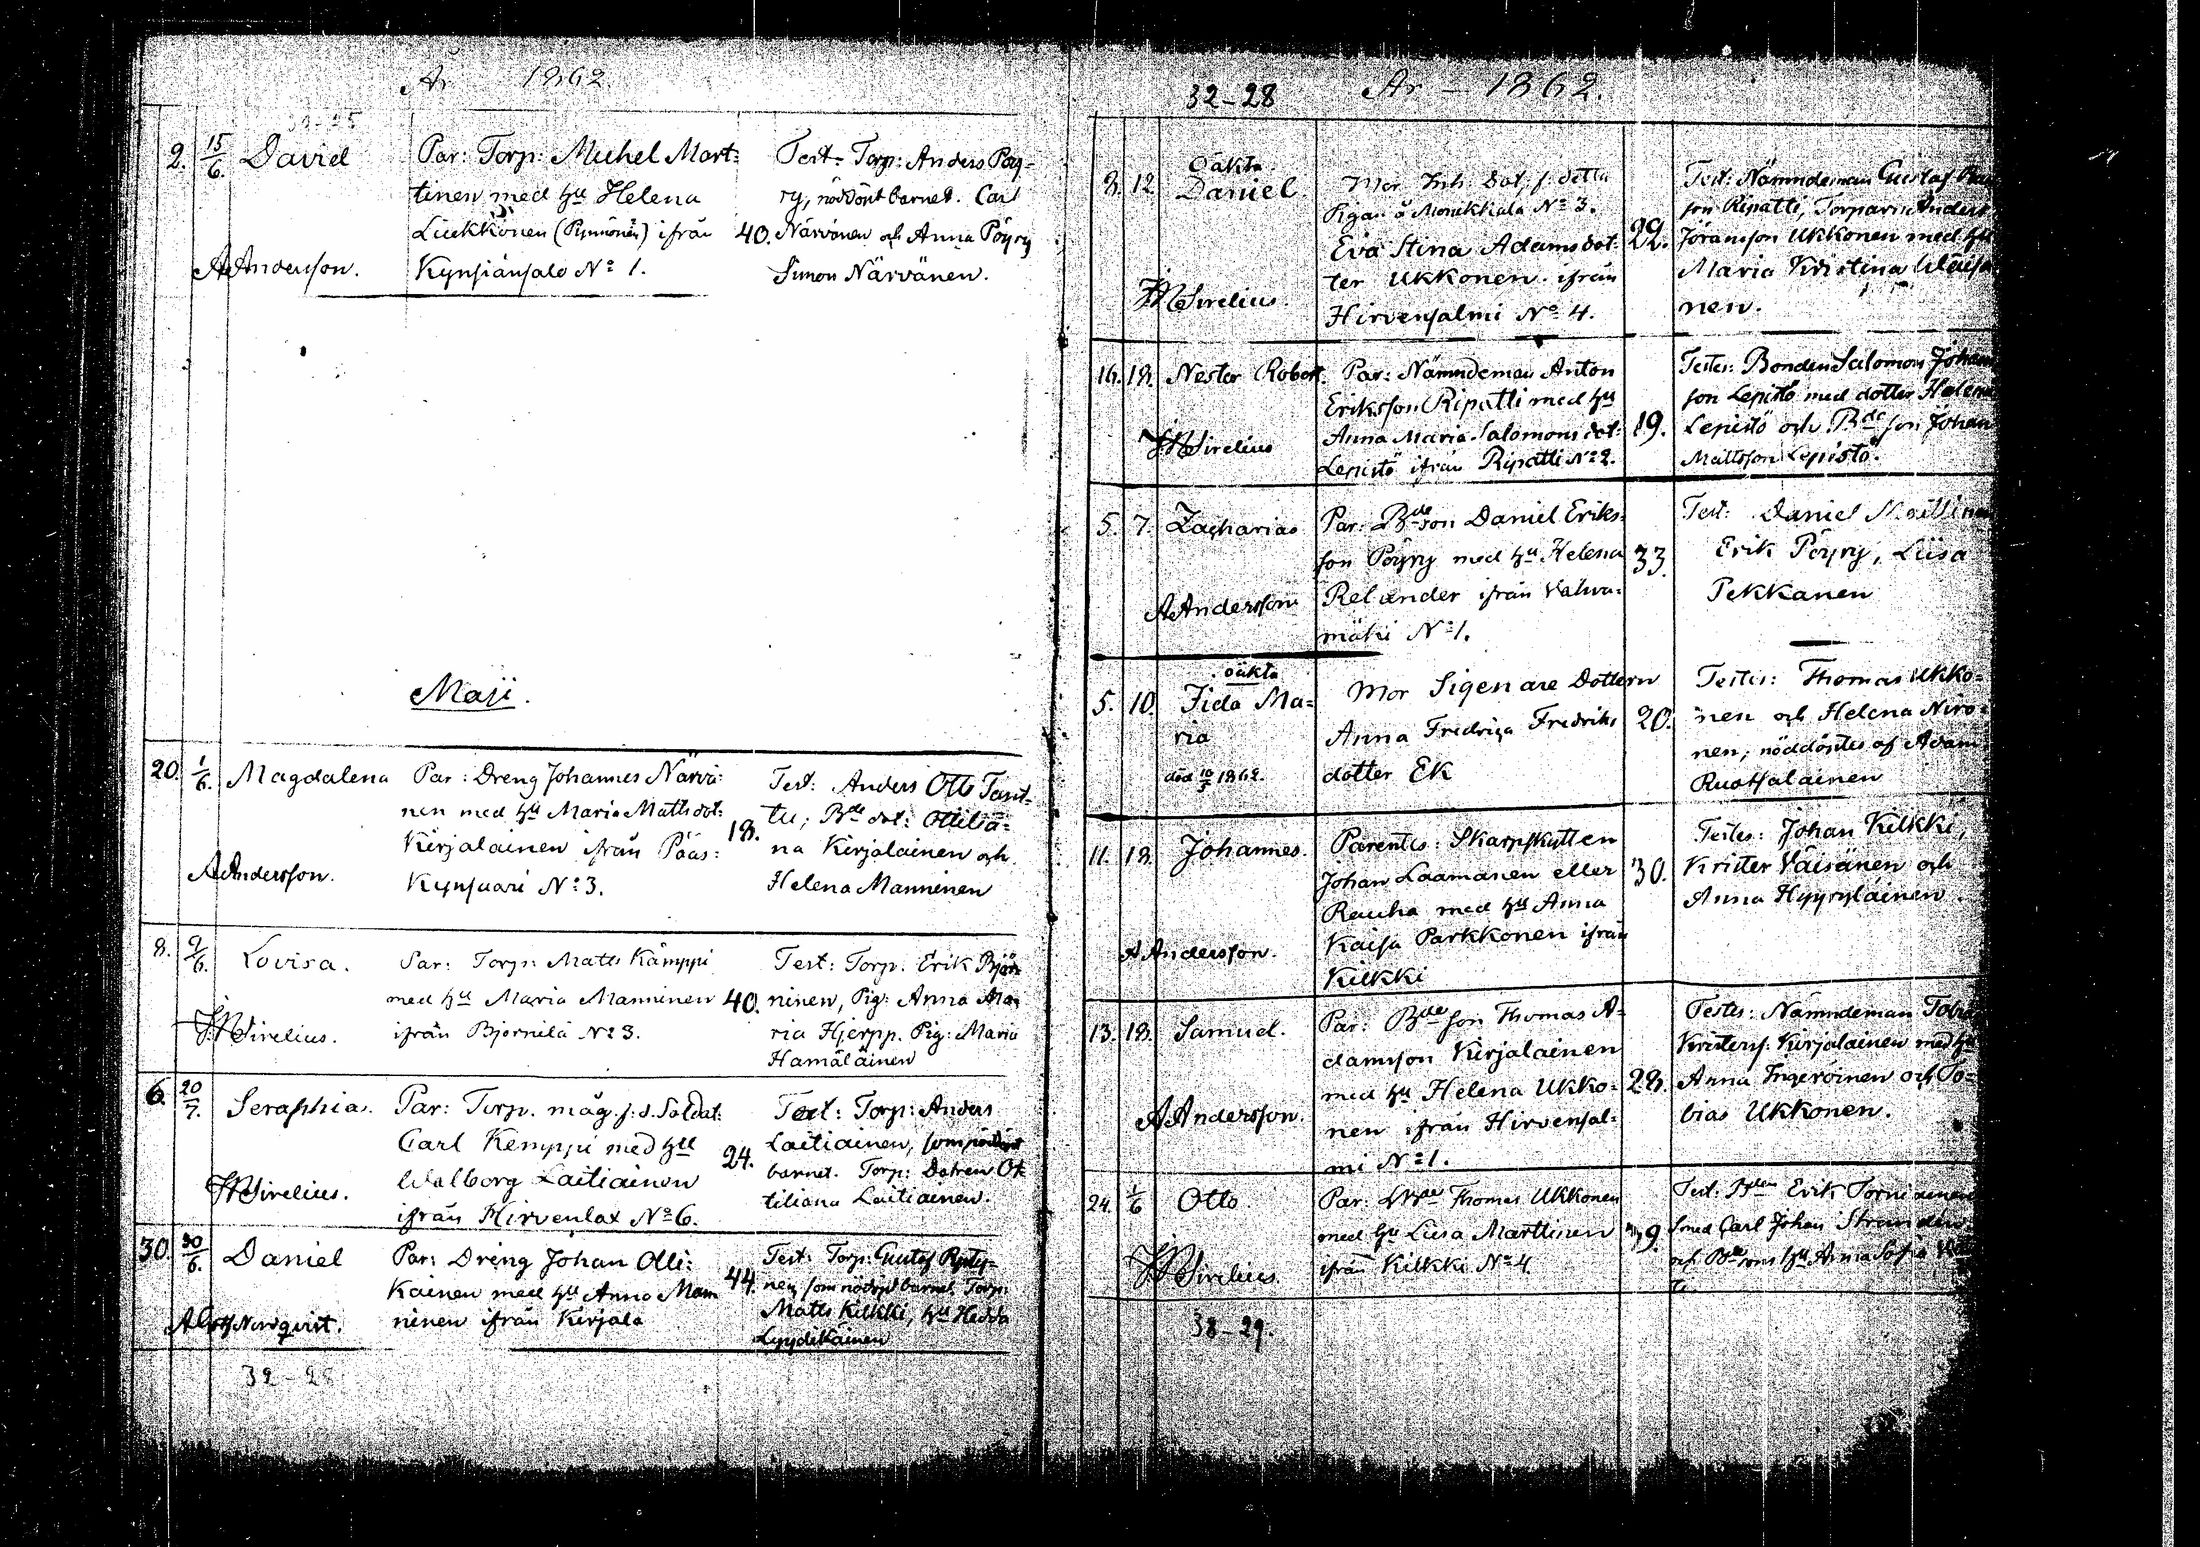 År 1862.
32-25
2. 15/6. David
Par: Torp: Michel Mart-
tinen med hu Helena
Liukkonen (Pynnönen) ifrån
Kynsiänsalo No 1.
A Andersson.
40.
Test: Torp: Anders Pöy-
ry, nöddöpt barnet. Carl
Närvänen och Anna Pöyry
Simon Närvänen.
Maji.
20. 1/6. Magdalena
A Andersson.
Par: Dreng Johannes Närvä-
nen med hu Maria Mattsdot:
Kirjalainen ifrån Pääs-
Kynsaari No 3.
18.
Test: Anders Otto Tant-
tu; Bde dot: Ottilia-
na Kirjalainen och
Helena Manninen
8. 9/6. Lovisa.
Sirelius.
Par: Torp: Matts Kämppi
med hu Maria Manninen
ifrån Björnilä No 3.
40.
Test: Torp. Erik Björ
ninen, Pig: Anna Ma-
ria Hjerpp. Pig: Maria
Hämäläinen
6. 20/7. Seraphia.
Sirelius.
Par: Torp. måg. f.d. Soldat:
Carl Kemppi med hu
Walborg Laitiainen
ifrån Hirvenlax No 6.
24.
Test: Torp: Anders
Laitiainen, som nöddöpt
barnet. Torp: Dotren Ot
tiliana Laitiainen.
30. 30/6. Daniel
Norqvist.
Par: Dräng Johan Olli-
kainen med hu Anna Man
ninen ifrån Kirjala
44.
Test: Torp: Gustaf
nen, som nöddöpt barnet, Torp:
Matts Kilkki, hu Hedda
Lyydikäinen
32-28
32-28 År - 1862.
8. 12. Oäkta.
Daniel.
Sirelius.
Mor Inh. Dot. f. detta
Pigan å Monikkala No 3.
Eva Stina Adamsdot-
ter Ukkonen ifrån
Hirvensalmi No 4.
29.
Test: Nämndeman Gustaf
son Ripatti, Torparen Anders
Göransson Ukkonen med hu
Maria Kristina Wäisä
nen.
16. 18. Nestor Robert.
Sirelius
Par: Nämndeman Anton
Eriksson Ripatti med hu
Anna Maria Salomonsdot:
Lepistö ifrån Ripatti No 2.
19.
Testes: Bonden Salomon Johans
son Lepistö med dotter Helena
Lepistö och Bde son Johan
Mattsson Lepistö.
5. 7. Zacharias
A Andersson
Par: Bde son Daniel Eriks-
son Pöyry med hu Helena
Relander ifrån Vahva-
mäki No 1.
33.
Test: Daniel
Erik Pöyry, Liisa
Pekkanen
5. 10. oäkta
Fida Ma-
ria
död 10/7 1862.
Mor Sigenare Dottern
Anna Fredriqa Fredriks
dotter Ek
20.
Testes: Thomas Ukko-
nen och Helena Niro-
nen, nöddöptes af Adam
Ruotsalainen
11. 18. Johannes.
A Andersson.
Parentes: Skarpskytten
Johan Laamanen eller
Rauha med hu Anna
Kaisa Parkkonen ifrån
Kilkki
30.
Testes: Johan Kilkki,
Krister Väisänen och
Anna Hyyryläinen.
13. 18. Samuel.
A Andersson.
Par: Bde son Thomas A-
damsson Kirjalainen
med hu Helena Ukko-
nen ifrån Hirvensal-
mi No 1.
28.
Testes: Nämndeman Tobias
Kristerss. Kirjalainen med hu
Anna Ingeroinen och To-
bias Ukkonen.
24. 1/6 Otto
Sirelius
Par: Thomas Ukkonen
med hu Liisa Marttinen
ifrån Kilkki No 4.
39.
Test: Erik Torniainen
Smed Carl Johan Strandén
och Bde sons hu Anna Sofia
38-29.